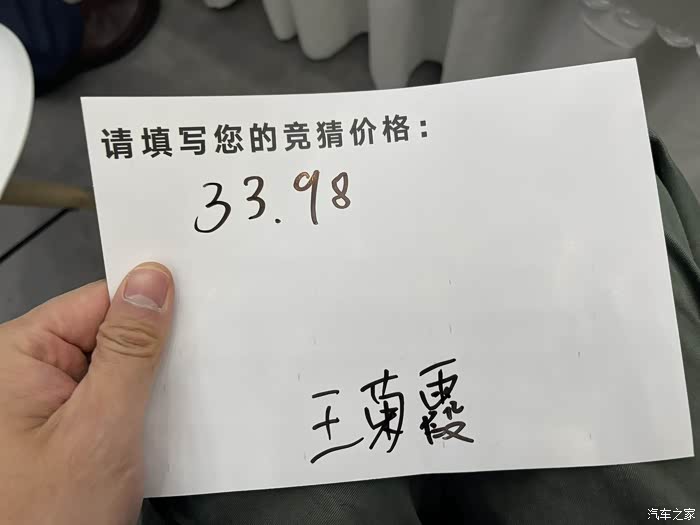 请填写您的竞猜价格：
33.98
王菊霞
汽车之家